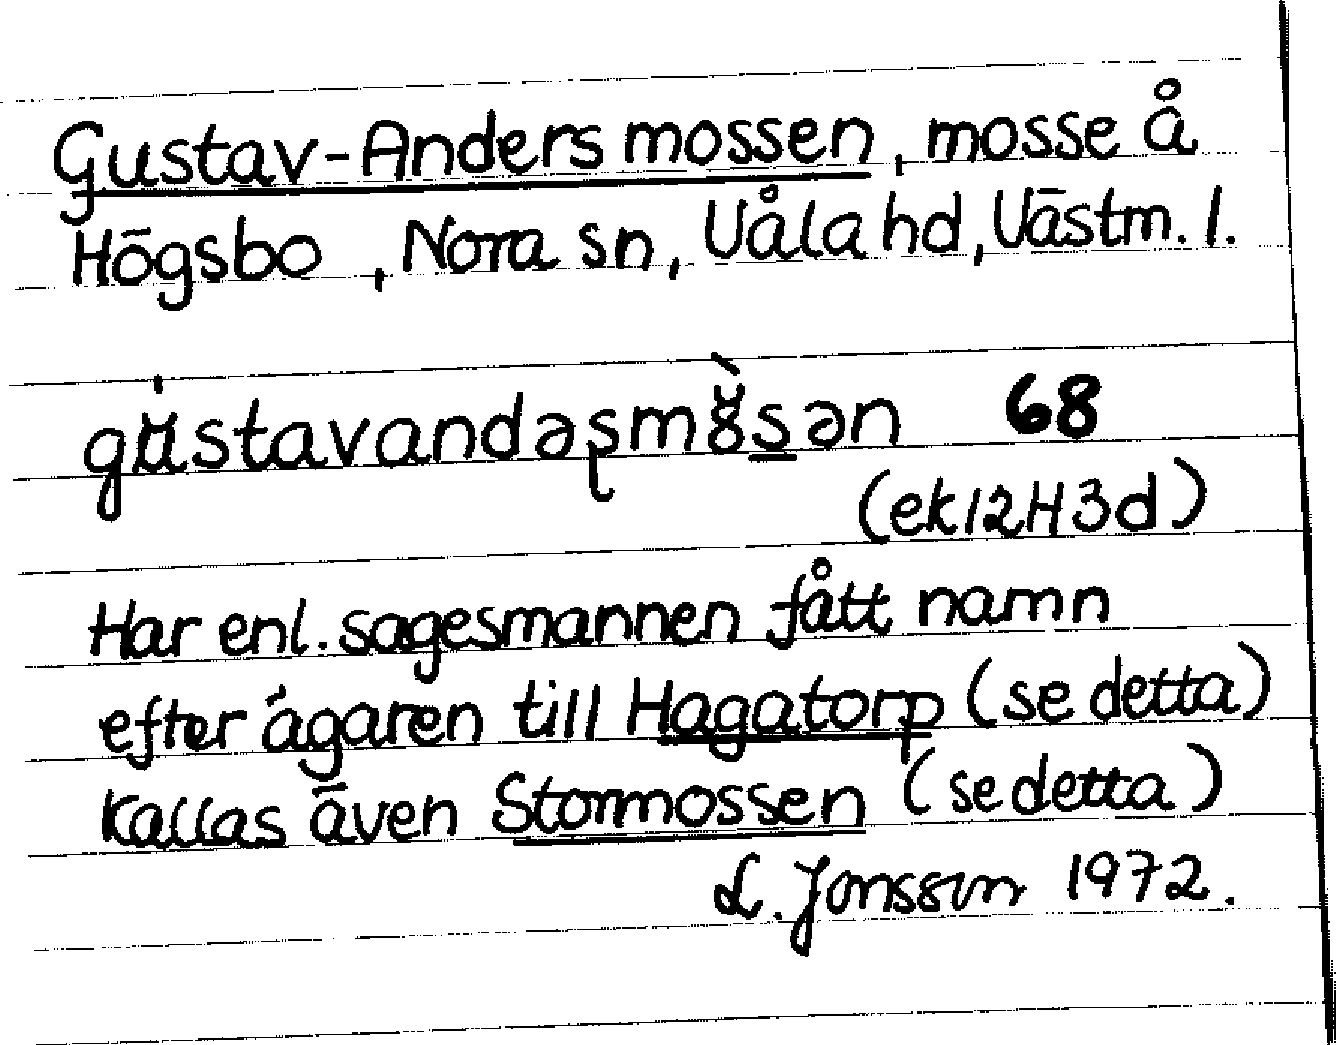 Gustav-Anders mossen, mosse å
Högsbo, Nora sn, Våla hd, Västm. l.
gustavandəʂmɷ̀sən 68
(ek 12H3d)
Har enl. sagesmannen fått namn
efter ägaren till Hagatorp (se detta)
Kallas även Stormossen (se detta)
L. Jonsson 1972.